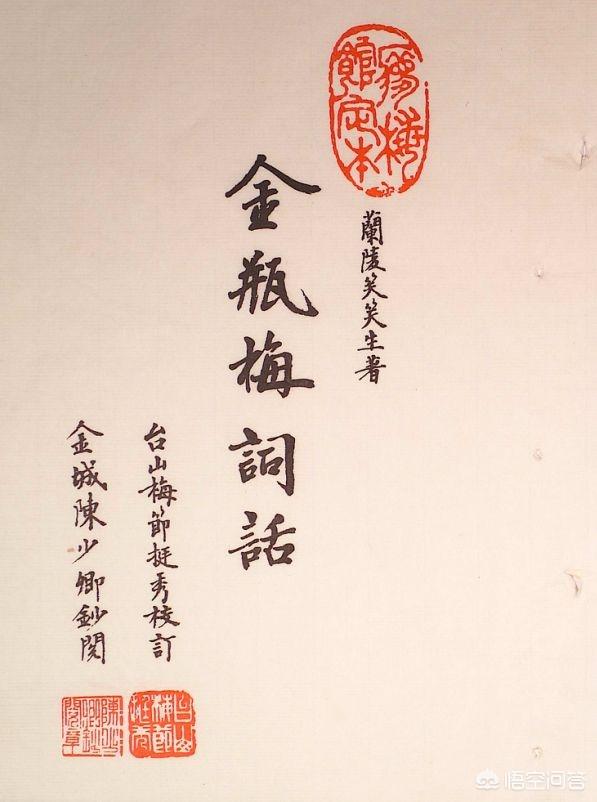 夢梅館定本
蘭陵笑笑生著
金瓶梅詞話
台山梅節挺秀校訂
金城陳少卿鈔閱
台山梅節挺秀
陳少卿鈔閱章
悟空问答